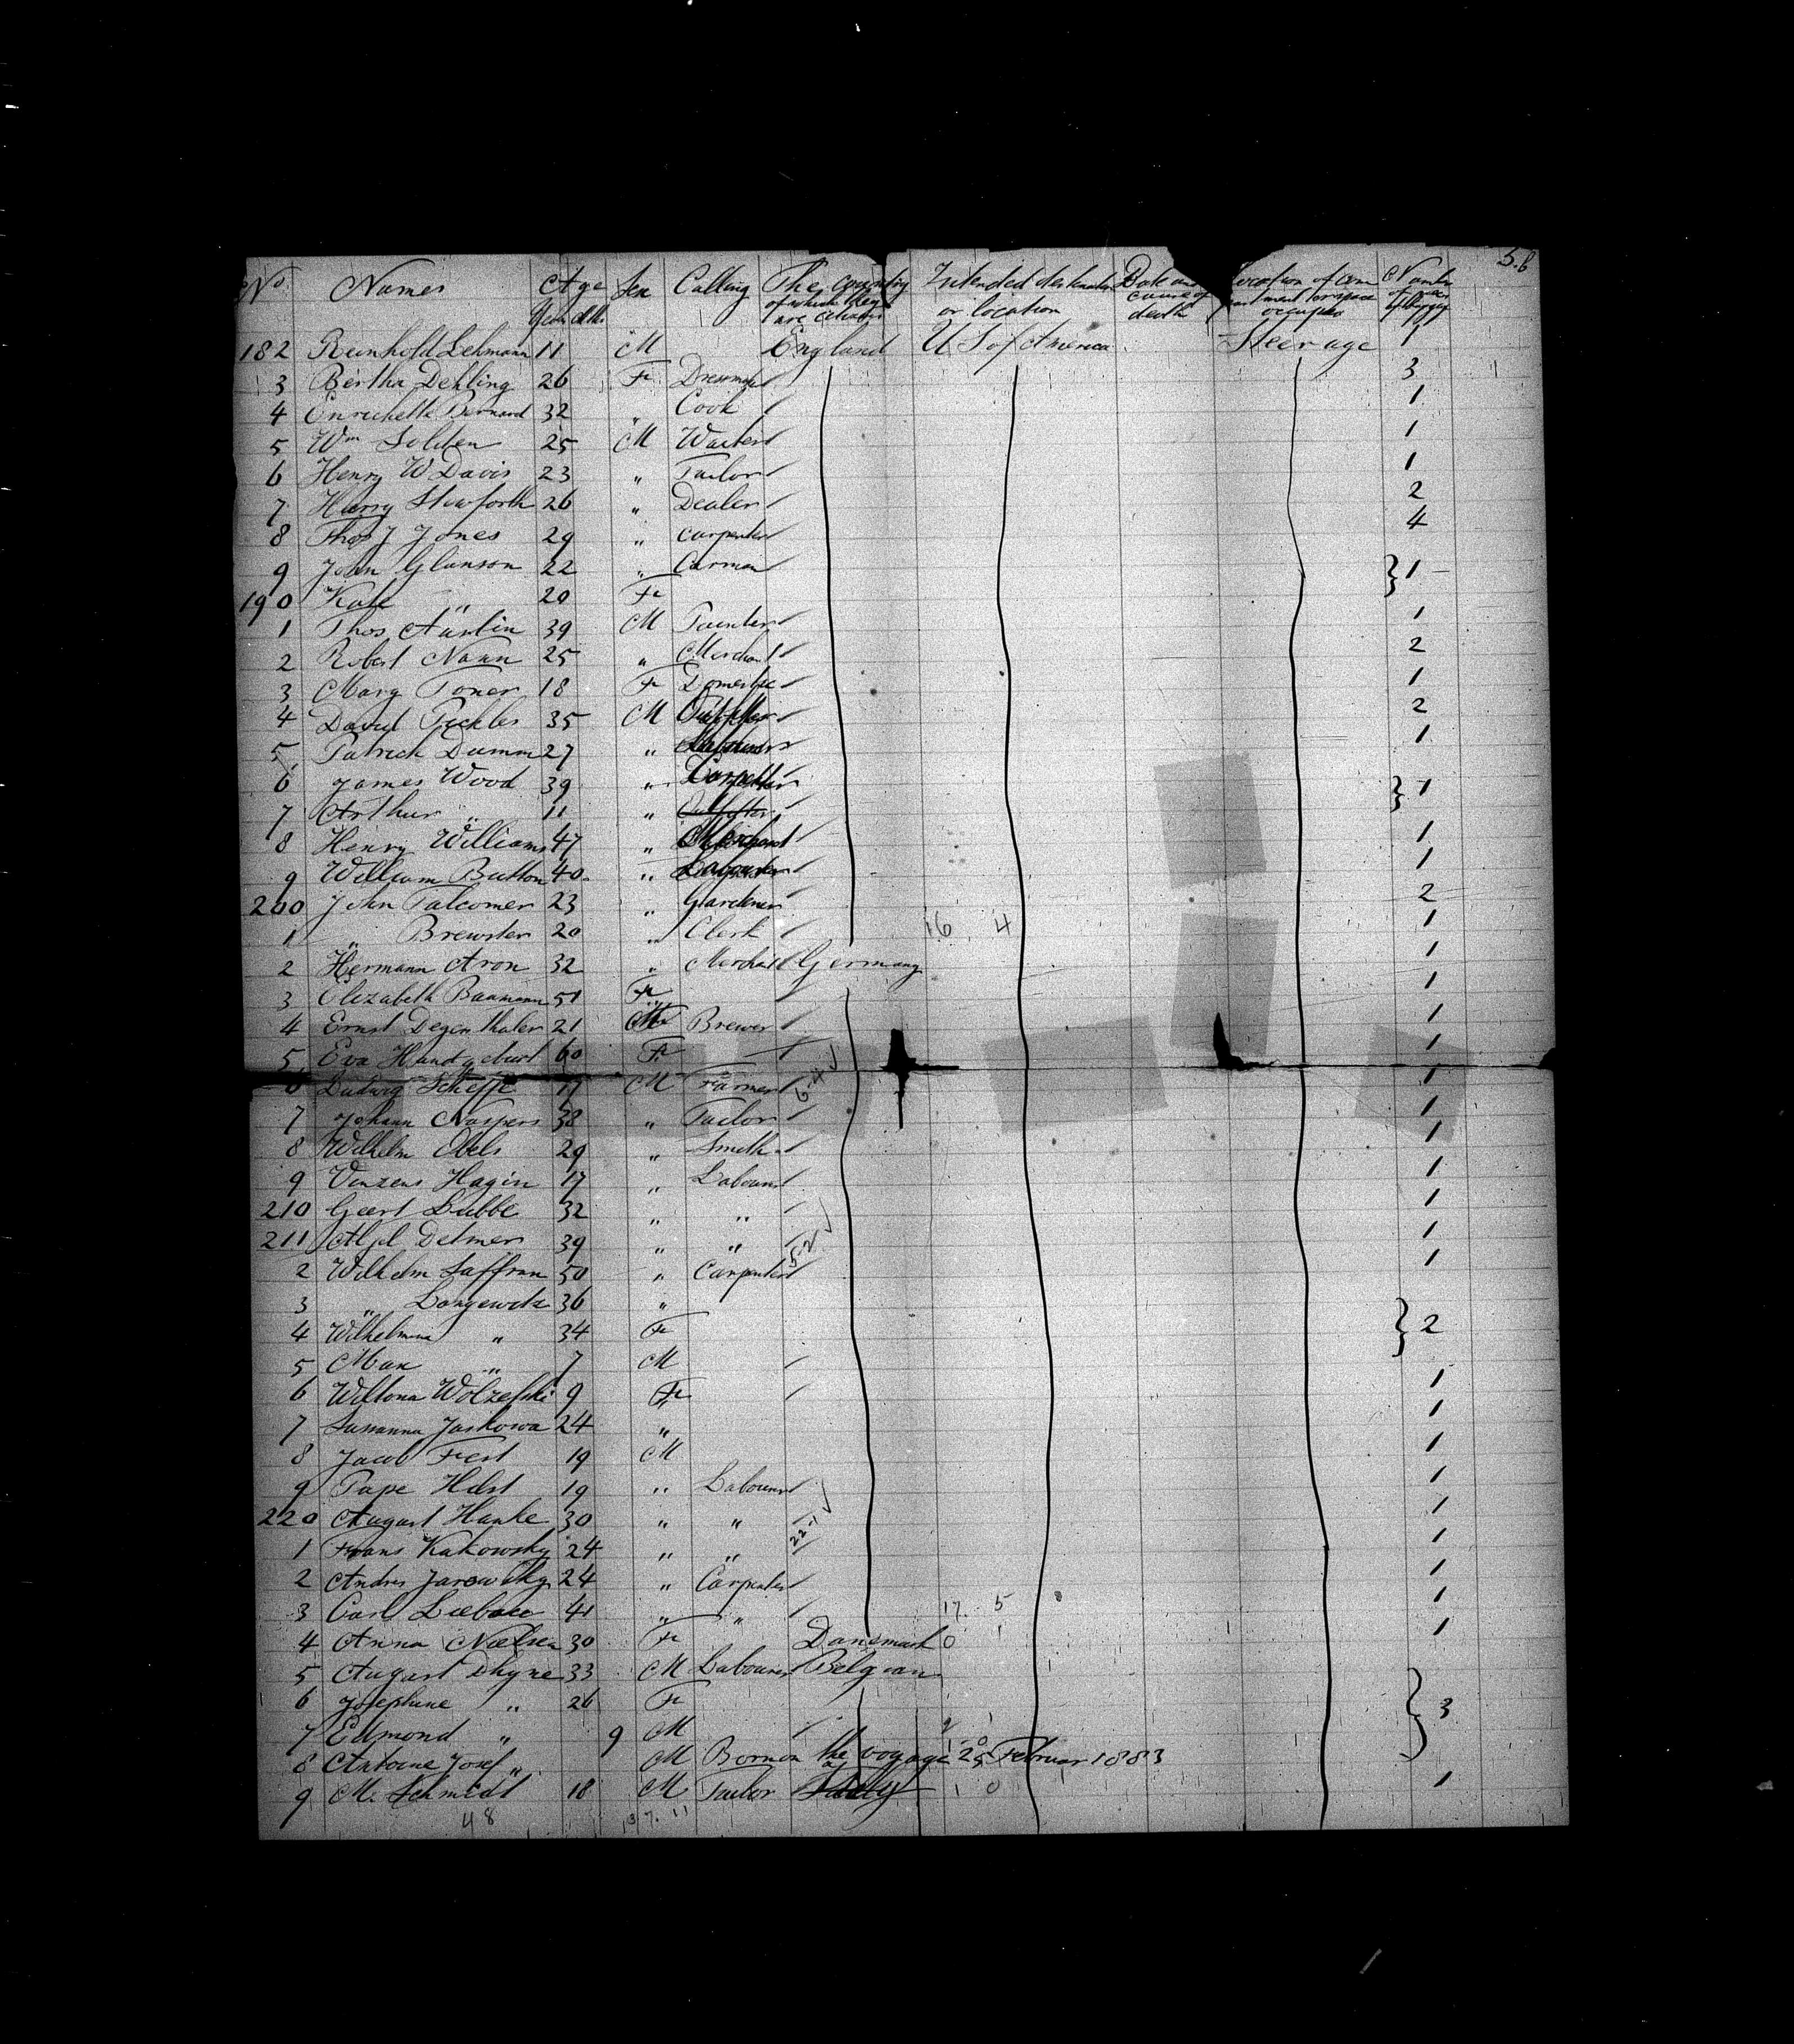 5.6
No Names Age Sex Calling The country Intended destination Date and Location of com Number
Years Mths of which they or location cause of partment or space of pieces
are citizens death occupied of baggage
182 Reinhold Lehmann 11 M England U S of America Steerage 1
3 Bertha Dehling 26 Fe Dressmak 3
4 Enrichette Bernard 32 " Cook 1
5 Wm Solben 25 M Waiter 1
6 Henry W Davis 23 " Tailor 1
7 Harry Stewforth 26 " Dealer 2
8 Thos J Jones 29 " Carpenter 4
9 John Glanson 22 " Carman } 1
190 Kate " 20 Fe
1 Thos Austin 39 M Painter 1
2 Robert Nann 25 " Merchant 2
3 Mary Toner 18 Fe Domestic 1
4 David Pickles 35 M 2
5 Patrick Dumm 27 " Labourer 1
6 James Wood 39 " Carpenter } 1
7 Arthur " 11 "
8 Henry Williams 47 " Merchant 1
9 William Button 40 " Labourer 1
200 John Falconer 23 " Gardener 2
1 " Brewster 20 " Clerk 16 4 1
2 Hermann Aron 32 " Merchant Germany 1
3 Elizabeth Baumann 51 Fe 1
4 Ernst Degenthaler 21 M Brewer 1
5 Eva Handgeburt 60 Fe 1
6 Ludwig Scheffe 17 M Farmer 6-4 1
7 Johann Naspers 38 " Tailor 1
8 Wilhelm Ebels 29 " Smith 1
9 Vinzens Hagin 17 " Labourer 1
210 Geert Lubbe 32 " " 1
211 Detmers 39 " " 5-2 1
2 Wilhelm Saffran 50 " Carpenter 1
3 " Langewitz 36 "
4 Wilhelmina " 34 Fe } 2
5 Max " 7 M
6 Wiltona Wolzefski 9 Fe 1
7 Susanna Jaskowa 24 " 1
8 Jacob Fest 19 M 1
9 Pape Helst 19 " Labourer 1
220 August Hanke 30 " " 22-1 1
1 Frans Kakowsky 24 " " 1
2 Andres Jarowsky 24 " Carpenter 1
3 Carl 41 " " 17. 5 1
4 Anna Nielsen 30 Fe Dansmark 0 1 1
5 August Dhyne 33 M Labourer Belgian
6 Josephine " 26 Fe } 3
7 Edmond " 9 M 2 1
8 Antoine Josef " M Born on the voyage 25 Februar 1883
9 M. Schmidt 18 M Tailor Italy 1 0 1
48 37. 11